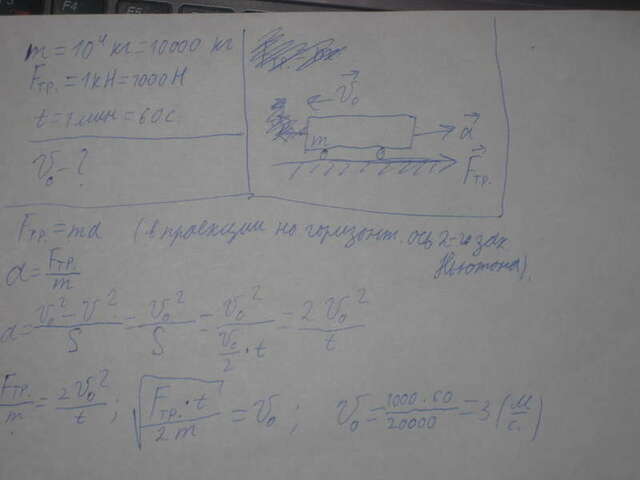 m = 10⁴ кг = 10000 кг
Fтр. = 1кН = 1000Н
t = 1 мин = 60 с.
v₀ - ?
v₀
m
a
Fтр.
Fтр. = ma (в проекции на горизонт. ось 2-й зак
Ньютона).
a = Fтр./m
a = (v₀² - v²)/S = v₀²/S = v₀²/(v₀/2 · t) = 2v₀²/t
Fтр./m = 2v₀²/t ; √(Fтр. · t/2m) = v₀ ; v₀ = 1000 · 60/20000 = 3 (м/с.)